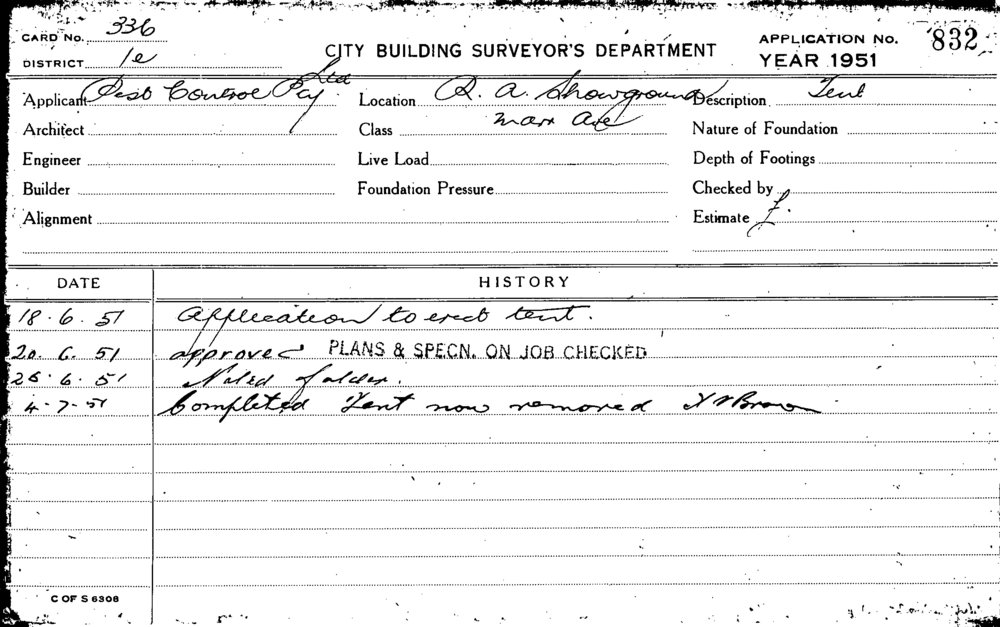 CARD No. 336
DISTRICT 1e
CITY BUILDING SURVEYOR'S DEPARTMENT
APPLICATION No. 832
YEAR 1951
Applicant Pest Control Pty Ltd
Location R. A. Showground
Description Tent
Architect
Class
Nature of Foundation
Engineer
Live Load
Depth of Footings
Builder
Foundation Pressure
Checked by
Alignment
Estimate £.
DATE HISTORY
18.6.51 Application to erect tent.
20.6.51 approved PLANS & SPECN. ON JOB CHECKED
26.6.51 Noted folder.
4-7-51 Completed Tent now removed Brown
C OF S 6308